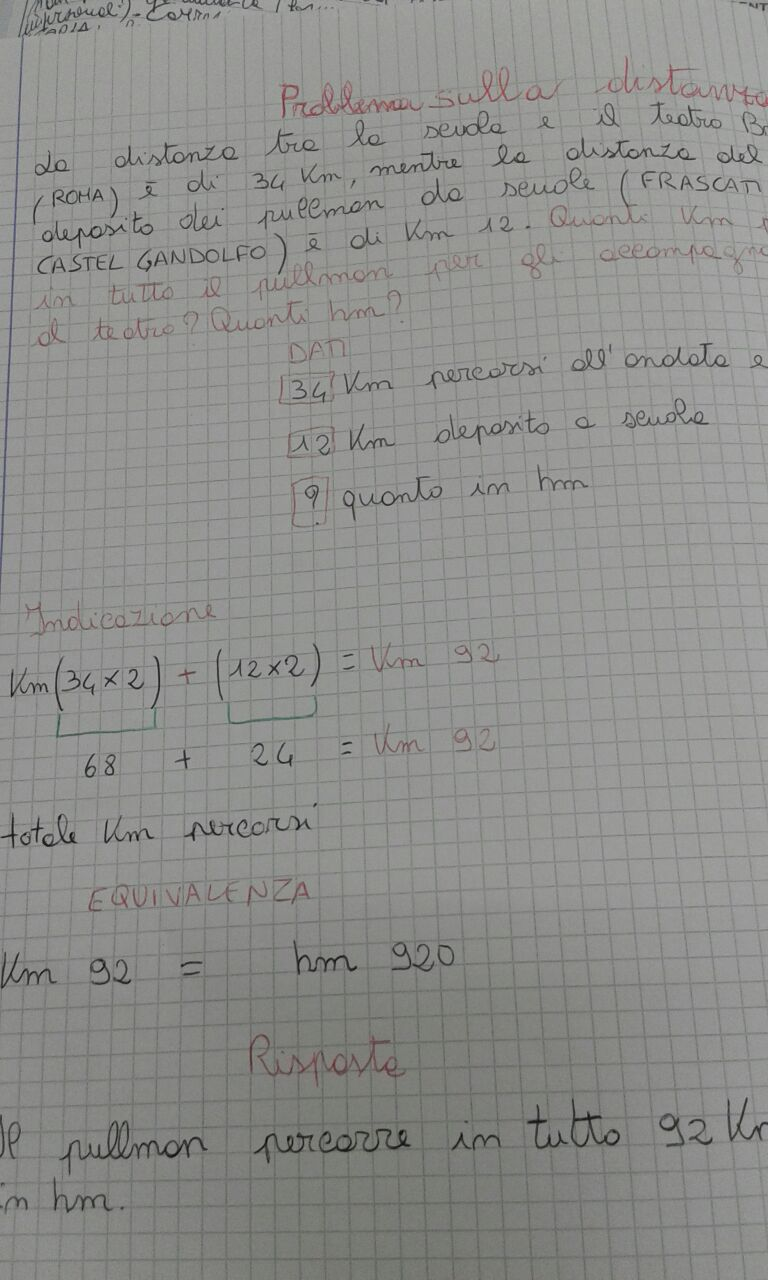 Problema sulla distanza
La distanza tra la scuola e il teatro
(ROMA) è di 34 Km, mentre la distanza del
deposito dei pullman da scuola (FRASCATI
CASTEL GANDOLFO) è di Km 12. Quanti Km
in tutto il pullman per gli
al teatro? Quanti hm?
DATI
34 Km percorsi all'andata e
12 Km deposito a scuola
? quanto in hm
Indicazione
Km (34 × 2) + (12 × 2) = Km 92
68 + 24 = Km 92
totale Km percorsi
EQUIVALENZA
Km 92 = hm 920
Risposta
Il pullman percorre in tutto 92 Km
in hm.